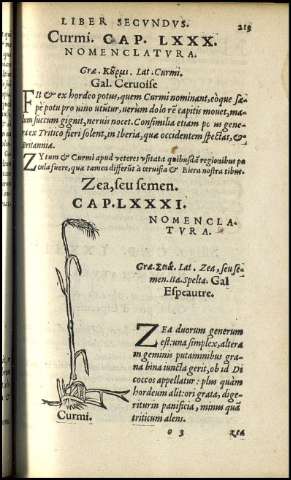 LIBER SECVNDVS. 215
Curmi. CAP. LXXX.
NOMENCLATVRA.
Græ. Κοῦρμι. Lat. Curmi.
Gal. Ceruoise
FIt & ex hordeo potus, quem Curmi nominant, eóque sæ-
pe potu pro uino utũtur, uerum dolo rẽ capitis mouet, ma-
lum succum gignit, neruis nocet. Consimilia etiam po us gene-
ra ex Tritico fieri solent, in Iberia, quæ occidentem spectat, &
Britannia.
ZYtum & Curmi apud veteres vsitata quibusdã regionibus po
cula fuere, quæ tamen differũt à ceruisia & Biera nostra tibus.
Zea, seu semen.
CAP. LXXXI.
NOMENCLA-
TVRA.
Græ. Ζειὰ. Lat. Zea, seu se-
men. Ita. Spelta. Gal
Espeautre.
ZEa duorum generum
est: una simplex, altera
in geminis putaminibus gra-
na bina iuncta gerit, ob id Di
coccos appellatur: plus quàm
hordeum alit: ori grata, dige-
riturin panificia, minus quã
triticum alens.
Curmi.
o 3 zea